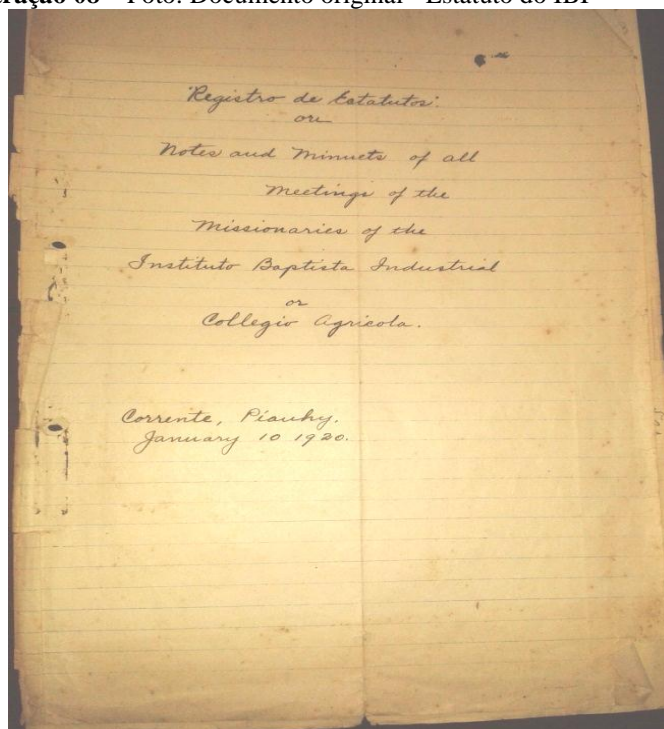 Foto: Documento original - Estatuto do IBI
"Registro de Estatutos".
ou
Notes and Minuets of all
Meetings of the
Missionaries of the
Instituto Baptista Industrial
or
Collegio Agricola.
Corrente, Piauhy.
January 10 1920.